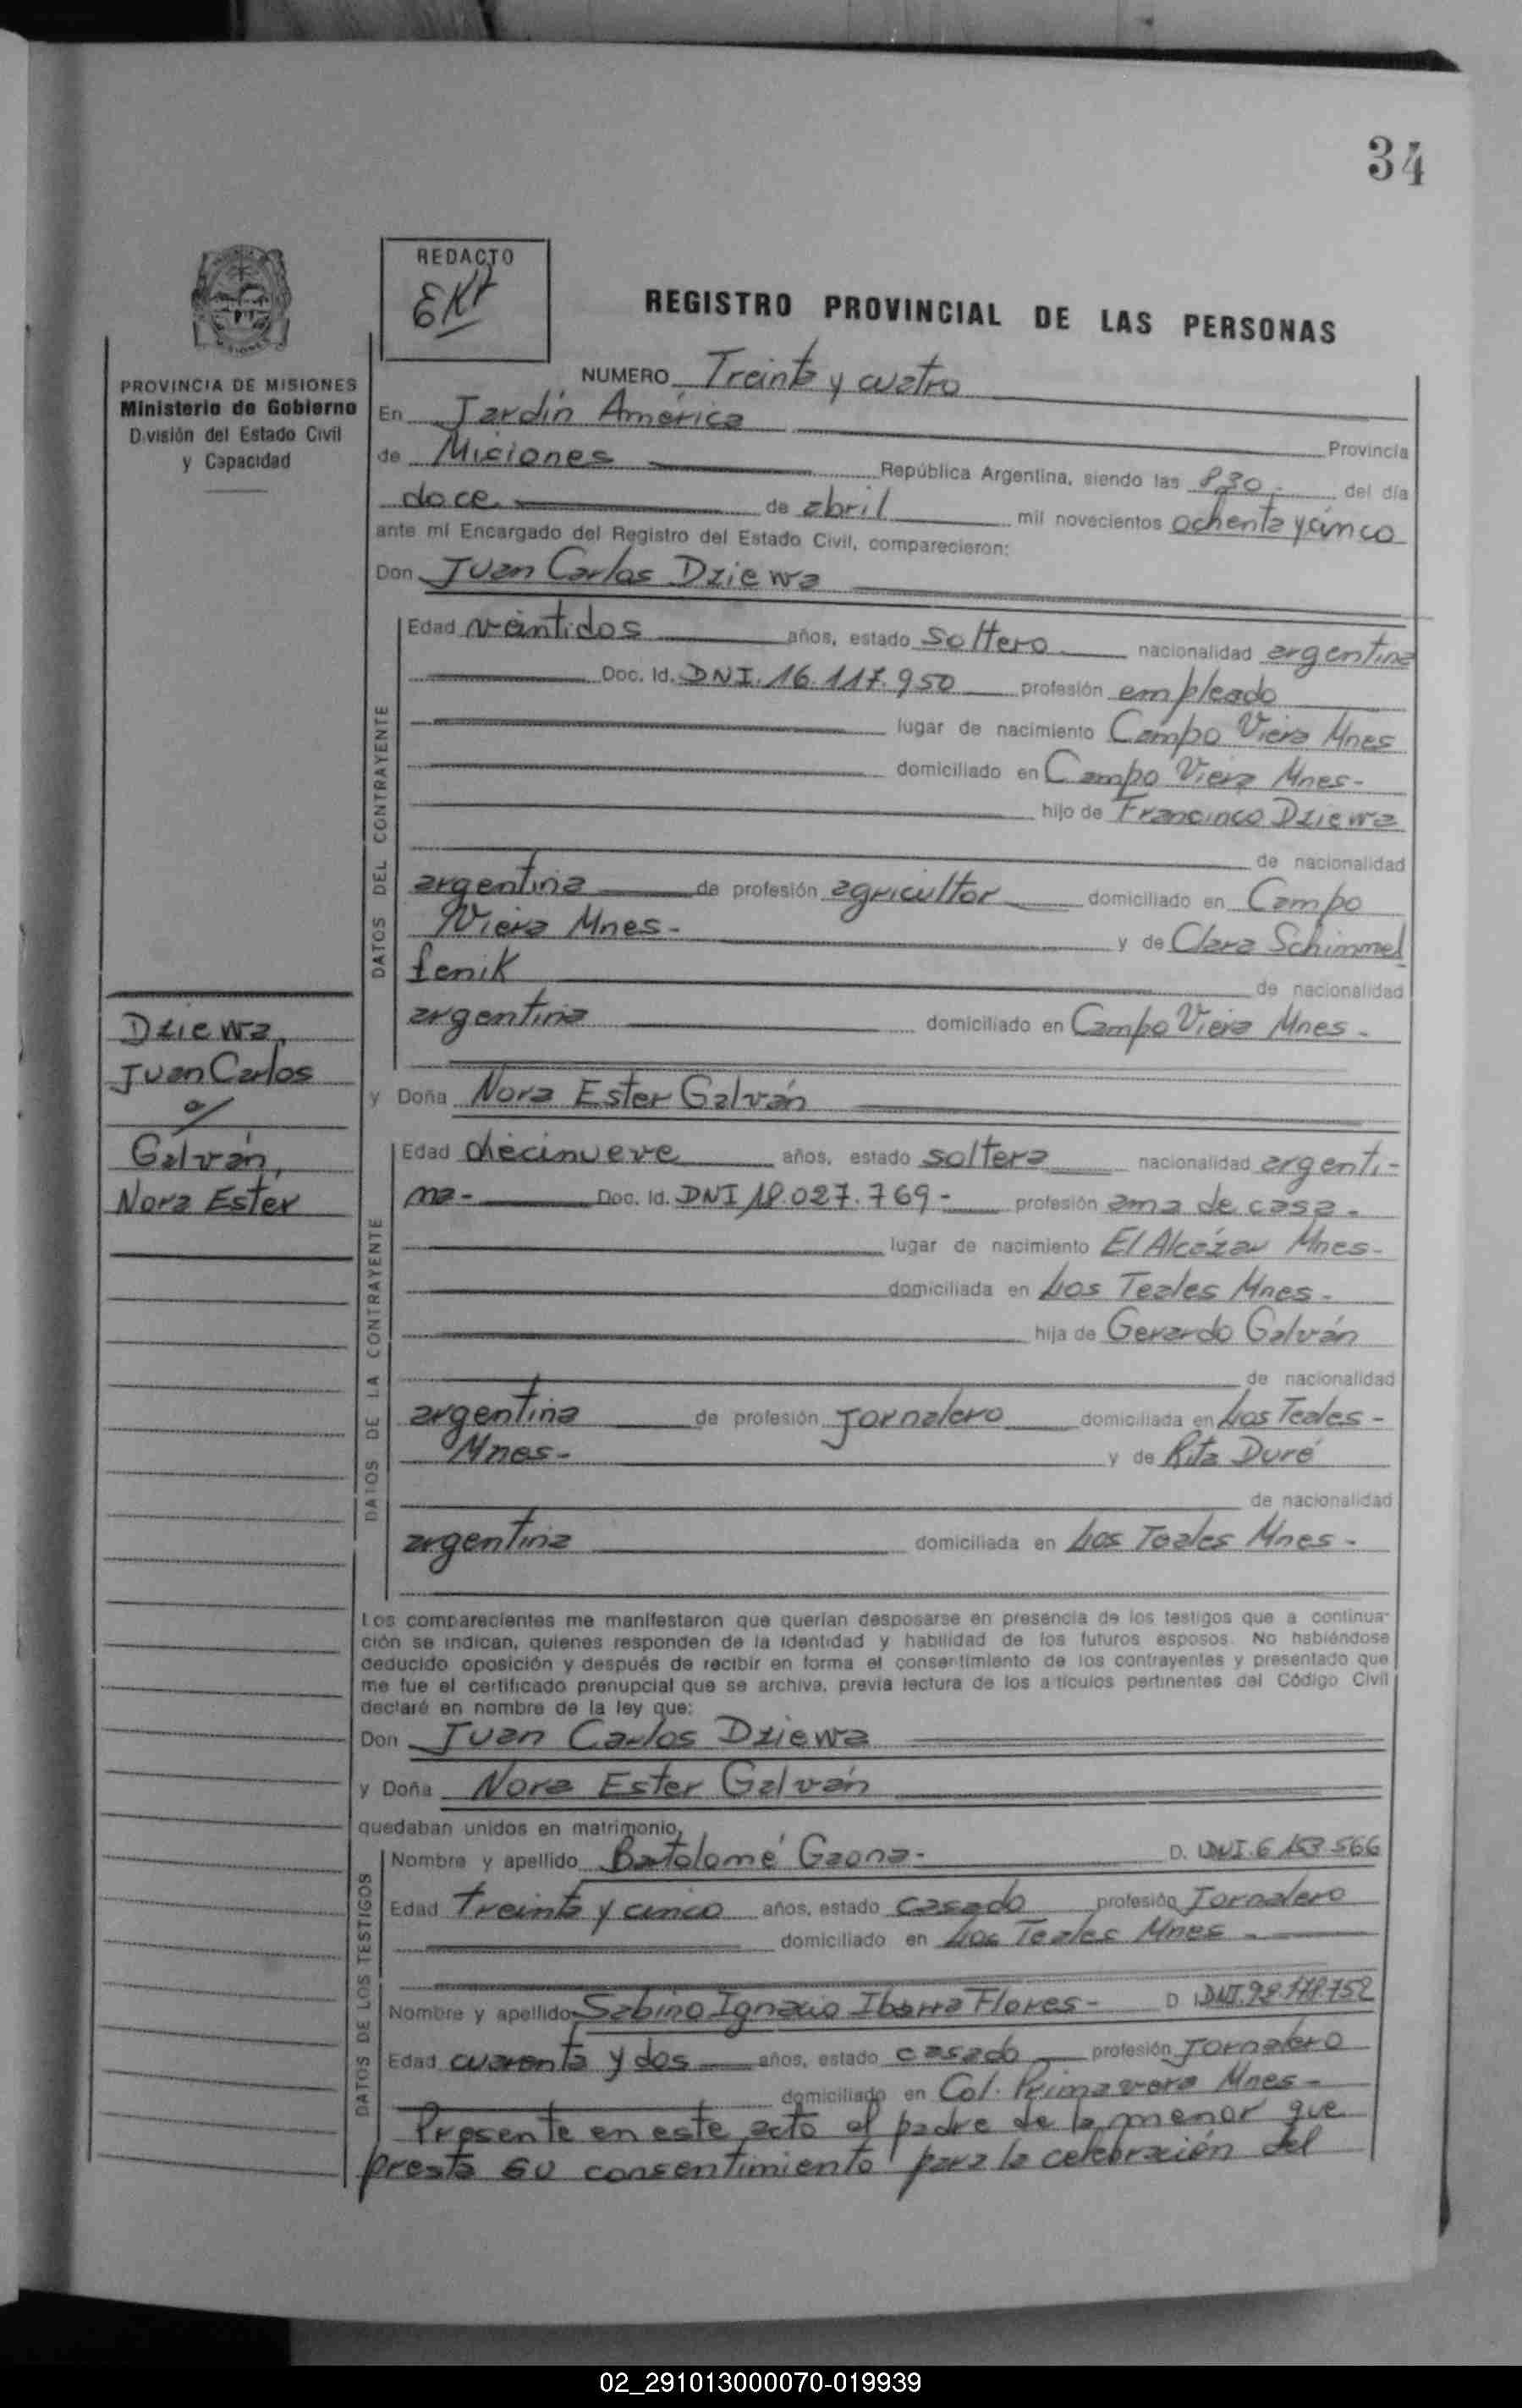 34
REDACTO
REGISTRO PROVINCIAL DE LAS PERSONAS
PROVINCIA DE MISIONES
Ministerio de Gobierno
División del Estado Civil
y Capacidad
NUMERO Treinta y cuatro
En Jardín América Provincia
de Misiones República Argentina, siendo las 830 - del día
doce de abril mil novecientos ochenta y cinco
ante mi Encargado del Registro del Estado Civil, comparecieron:
Don Juan Carlos Dziewa
DATOS DEL CONTRAYENTE
Edad veintidos años, estado soltero nacionalidad argentina
Doc. Id. DNI. 16.117.950 profesión empleado
lugar de nacimiento Campo Viera Mnes
domiciliado en Campo Viera Mnes-
hijo de Francinco Dziewa
de nacionalidad
argentina de profesión agricultor domiciliado en Campo
Viera Mnes- y de Clara Schimmel
fenik de nacionalidad
argentina domiciliado en Campo Viera Mnes-
Dziewa,
Juan Carlos
Galván,
Nora Ester
y Doña Nora Ester Galván
DATOS DE LA CONTRAYENTE
Edad diecinueve años, estado soltera nacionalidad argenti-
na- Doc. Id. DNI 18.027.769- profesión ama de casa-
lugar de nacimiento El Alcázar Mnes-
domiciliada en Los Teales Mnes-
hija de Gerardo Galván
de nacionalidad
argentina de profesión Jornalero domiciliada en Los Teales-
Mnes- y de Rita Duré
de nacionalidad
argentina domiciliada en Los Teales Mnes-
Los comparecientes me manifestaron que querían desposarse en presencia de los testigos que a continua-
ción se indican, quienes responden de la identidad y habilidad de los futuros esposos. No habiéndose
deducido oposición y después de recibir en forma el consentimiento de los contrayentes y presentado que
me fue el certificado prenupcial que se archiva, previa lectura de los artículos pertinentes del Código Civil
declaré en nombre de la ley que:
Don Juan Carlos Dziewa
y Doña Nora Ester Galván
quedaban unidos en matrimonio,
DATOS DE LOS TESTIGOS
Nombre y apellido Bartolomé Gaona- D. I. DNI. 6.153.566
Edad treinta y cinco años, estado casado profesión Jornalero
domiciliado en Los Teales Mnes-
Nombre y apellido Sabino Ignacio Ibarra Flores- D I DNI.
Edad cuarenta y dos años, estado casado profesión Jornalero
domiciliado en Col. Primavera Mnes-
Presente en este acto el padre de la menor que
presta su consentimiento para la celebración del
02_291013000070-019939